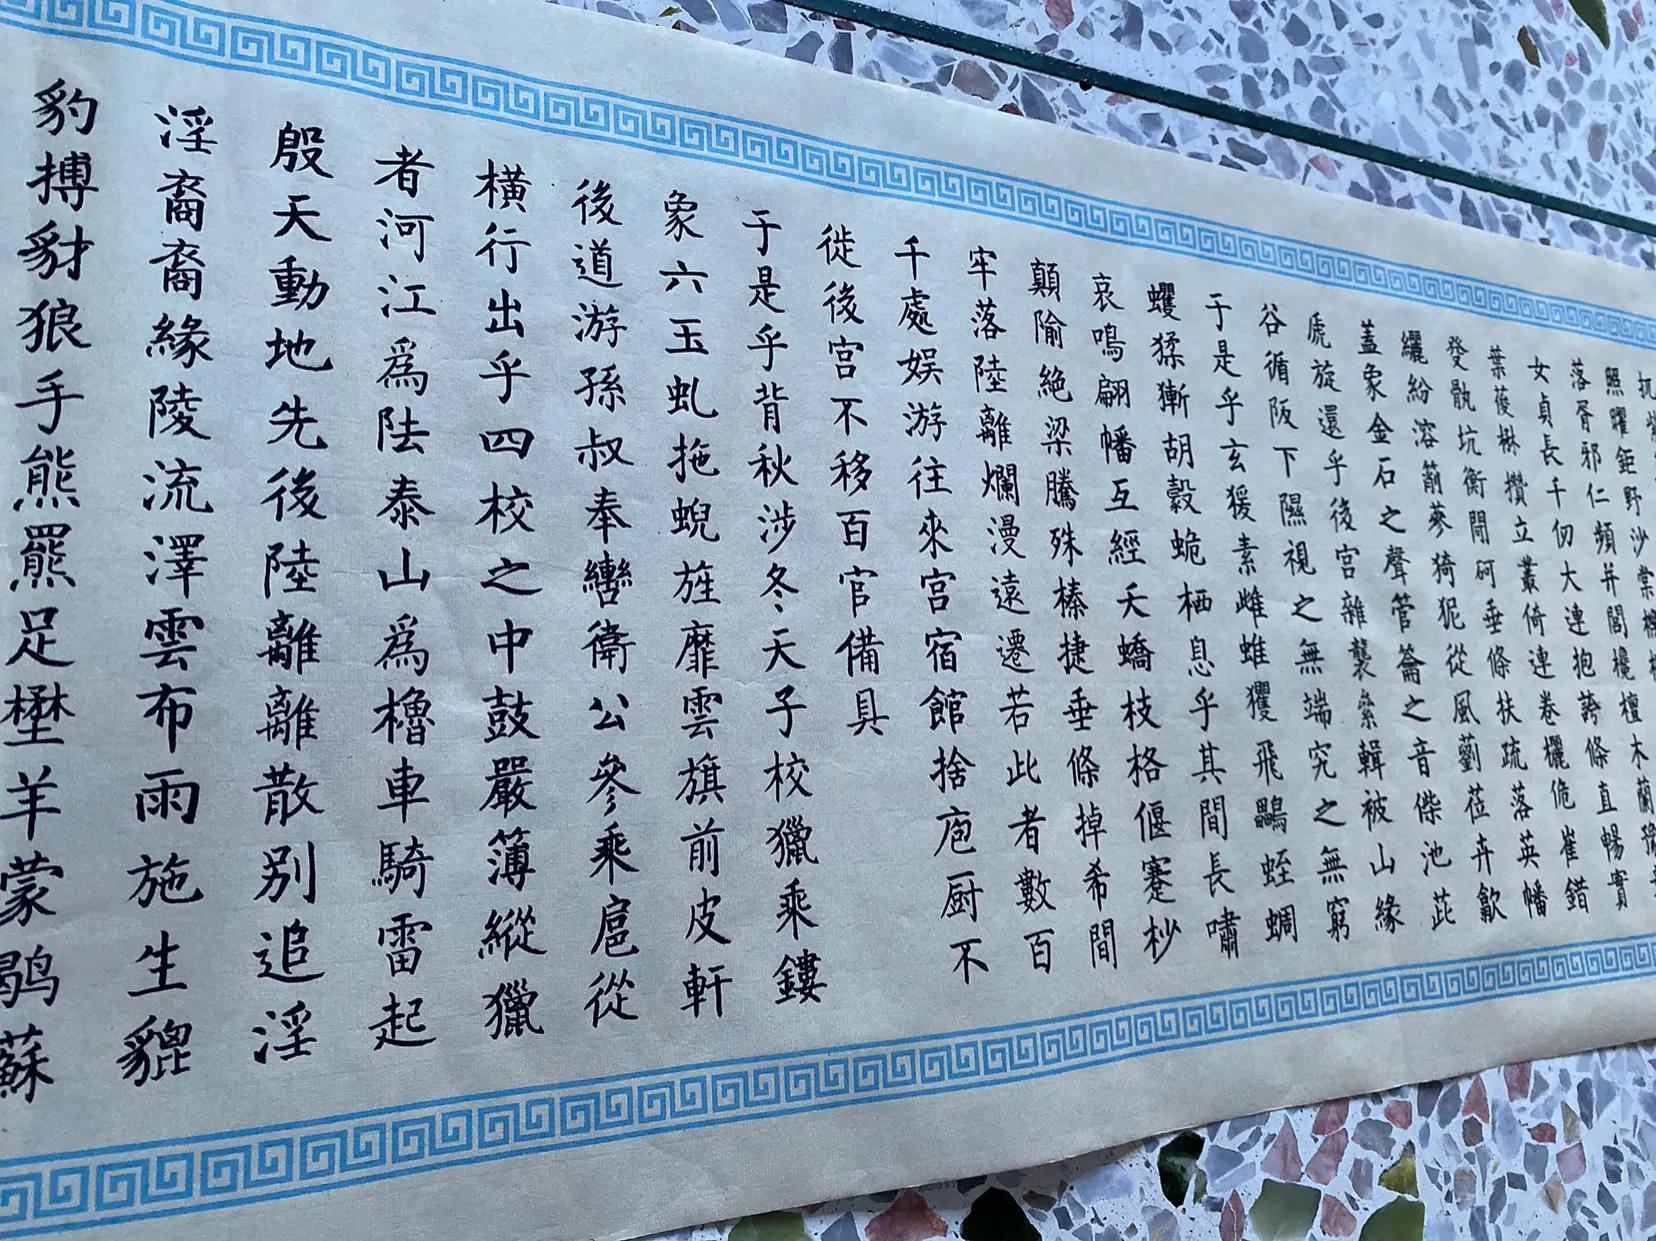 照曜鉅野沙棠
落胥邪仁頻并閭欃檀木蘭豫章
女貞長千仞大連抱誇條直暢實
葉葰楙攢立叢倚連卷欐佹崔錯
癹骫坑衡閜砢垂條扶疏落英幡
纚紛溶萷蔘猗狔從風藰莅卉歙
蓋象金石之聲管籥之音偨池茈
虒旋還乎後宮雜襲絫輯被山緣
谷循阪下隰視之無端究之無窮
于是乎玄猨素雌蜼玃飛鸓蛭蜩
蠼猱獑胡縠蛫栖息乎其間長嘯
哀鳴翩幡互經夭蟜枝格偃蹇杪
顛隃絕梁騰殊榛捷垂條掉希間
牢落陸離爛漫遠遷若此者數百
千處娛游往來宮宿館捨庖厨不
徙後宮不移百官備具
于是乎背秋涉冬天子校獵乘鏤
象六玉虬拖蜺旌靡雲旗前皮軒
後道游孫叔奉轡衛公參乘扈從
橫行出乎四校之中鼓嚴簿縱獵
者河江爲阹泰山爲櫓車騎雷起
殷天動地先後陸離離散别追淫
淫裔裔緣陵流澤雲布雨施生貔
豹搏豺狼手熊羆足壄羊蒙鶡蘇